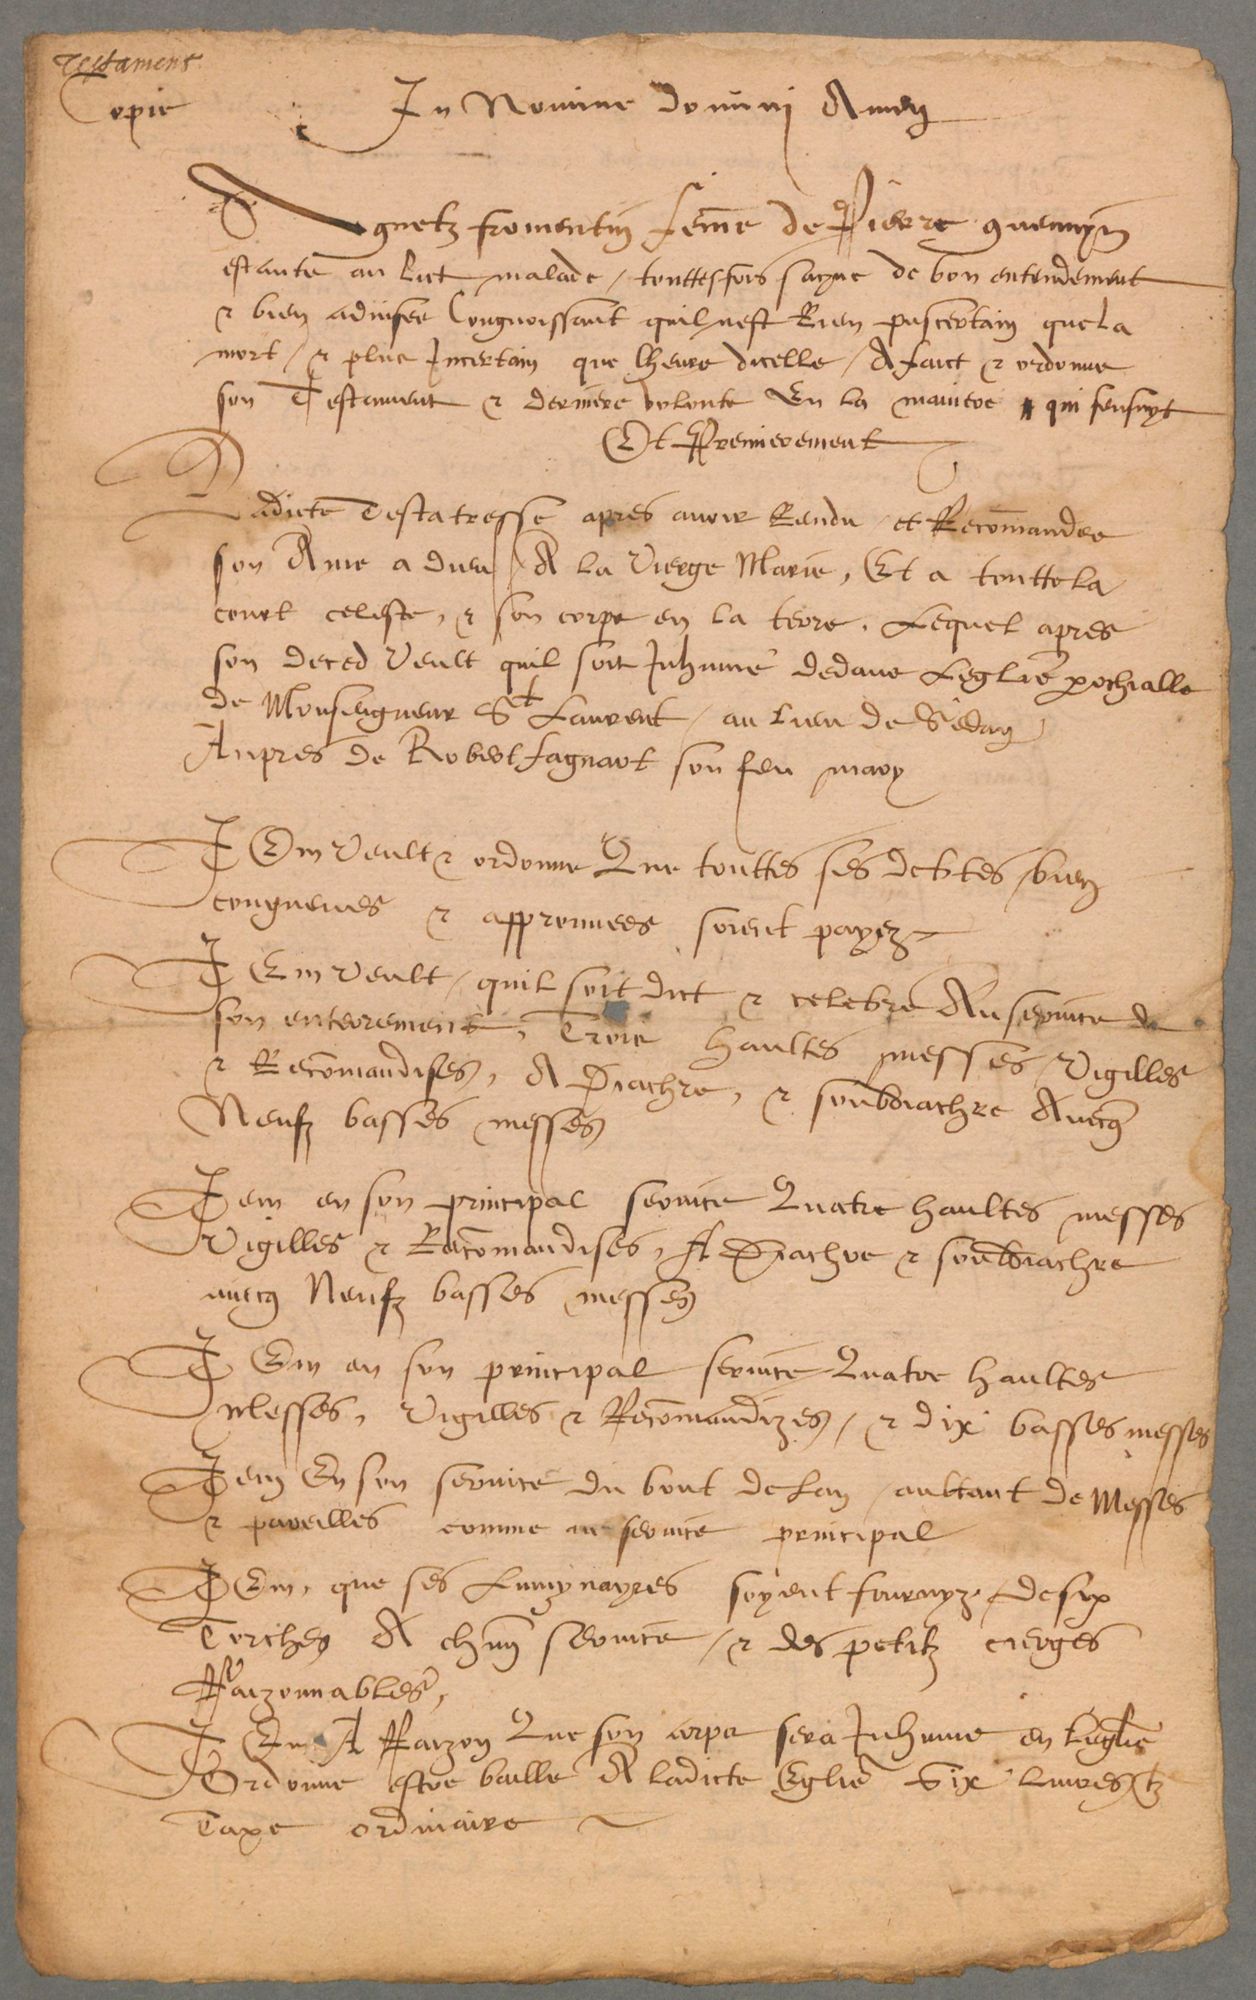 Testament
Copie
In Nomine domini Amen
Agnetz fromentin feme de Pierre
estante au lict malade / touttesfois sayne de bon entendement
& bien aduisee Congnoissant quil nest Rien puscertain que La
mort / & plus Incertain que lheure dicelle / A faict & ordonne
son Testament & derniere volonte En la maniere qui sensuyt
Et Premierement
Ladicte Testatresse apres auoir Rendu et Recomandee
son Ame a dieu / A la Vierge Marie, Et a toutte la
court celeste, & son corps en la terre. Lequel apres
son deced Veult quil soit Inhumé dedans Leglise pochialle
de Monseigneur St Laurent / au lieu de Sedan
Aupres de Robert fagnart son feu mary
ITEm Veult & ordonne Que touttes ses debtes bien
congneues & approuuees soient payez
ITEm veult / quil soit dict & celebre Au seruice de
son enterrement, Trois haultes messes, Vigilles
& Recomandises, A Diachre, & soubdiachre Auecq
Neufz basses messes
Item en son principal seruice Quatre haultes messes
Vigilles & Recomandises, A Diachre & soubdiachre
auecq Neufz basses messes
ITEm en son principal seruice Quatre haultes
Messes, Vigilles & Recomandizes, & dix basses messes
Item En son seruice du bout de lan / aultant de Messes
& pareilles comme au seruice principal
ITEm, que ses Lumynayres soyent fournyz, de six
Torches A chun seruice / & des petitz cierges
Raizonnables,
ITEm A Raizon Que son corps sera Inhume en leglise
Ordonne estre baille A ladicte Eglise Six liures tz
Taxe ordinaire